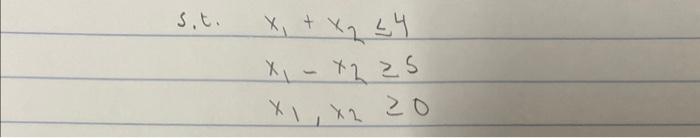 s.t. x₁ + x₂ ≤ 4
x₁ - x₂ ≥ 5
x₁, x₂ ≥ 0